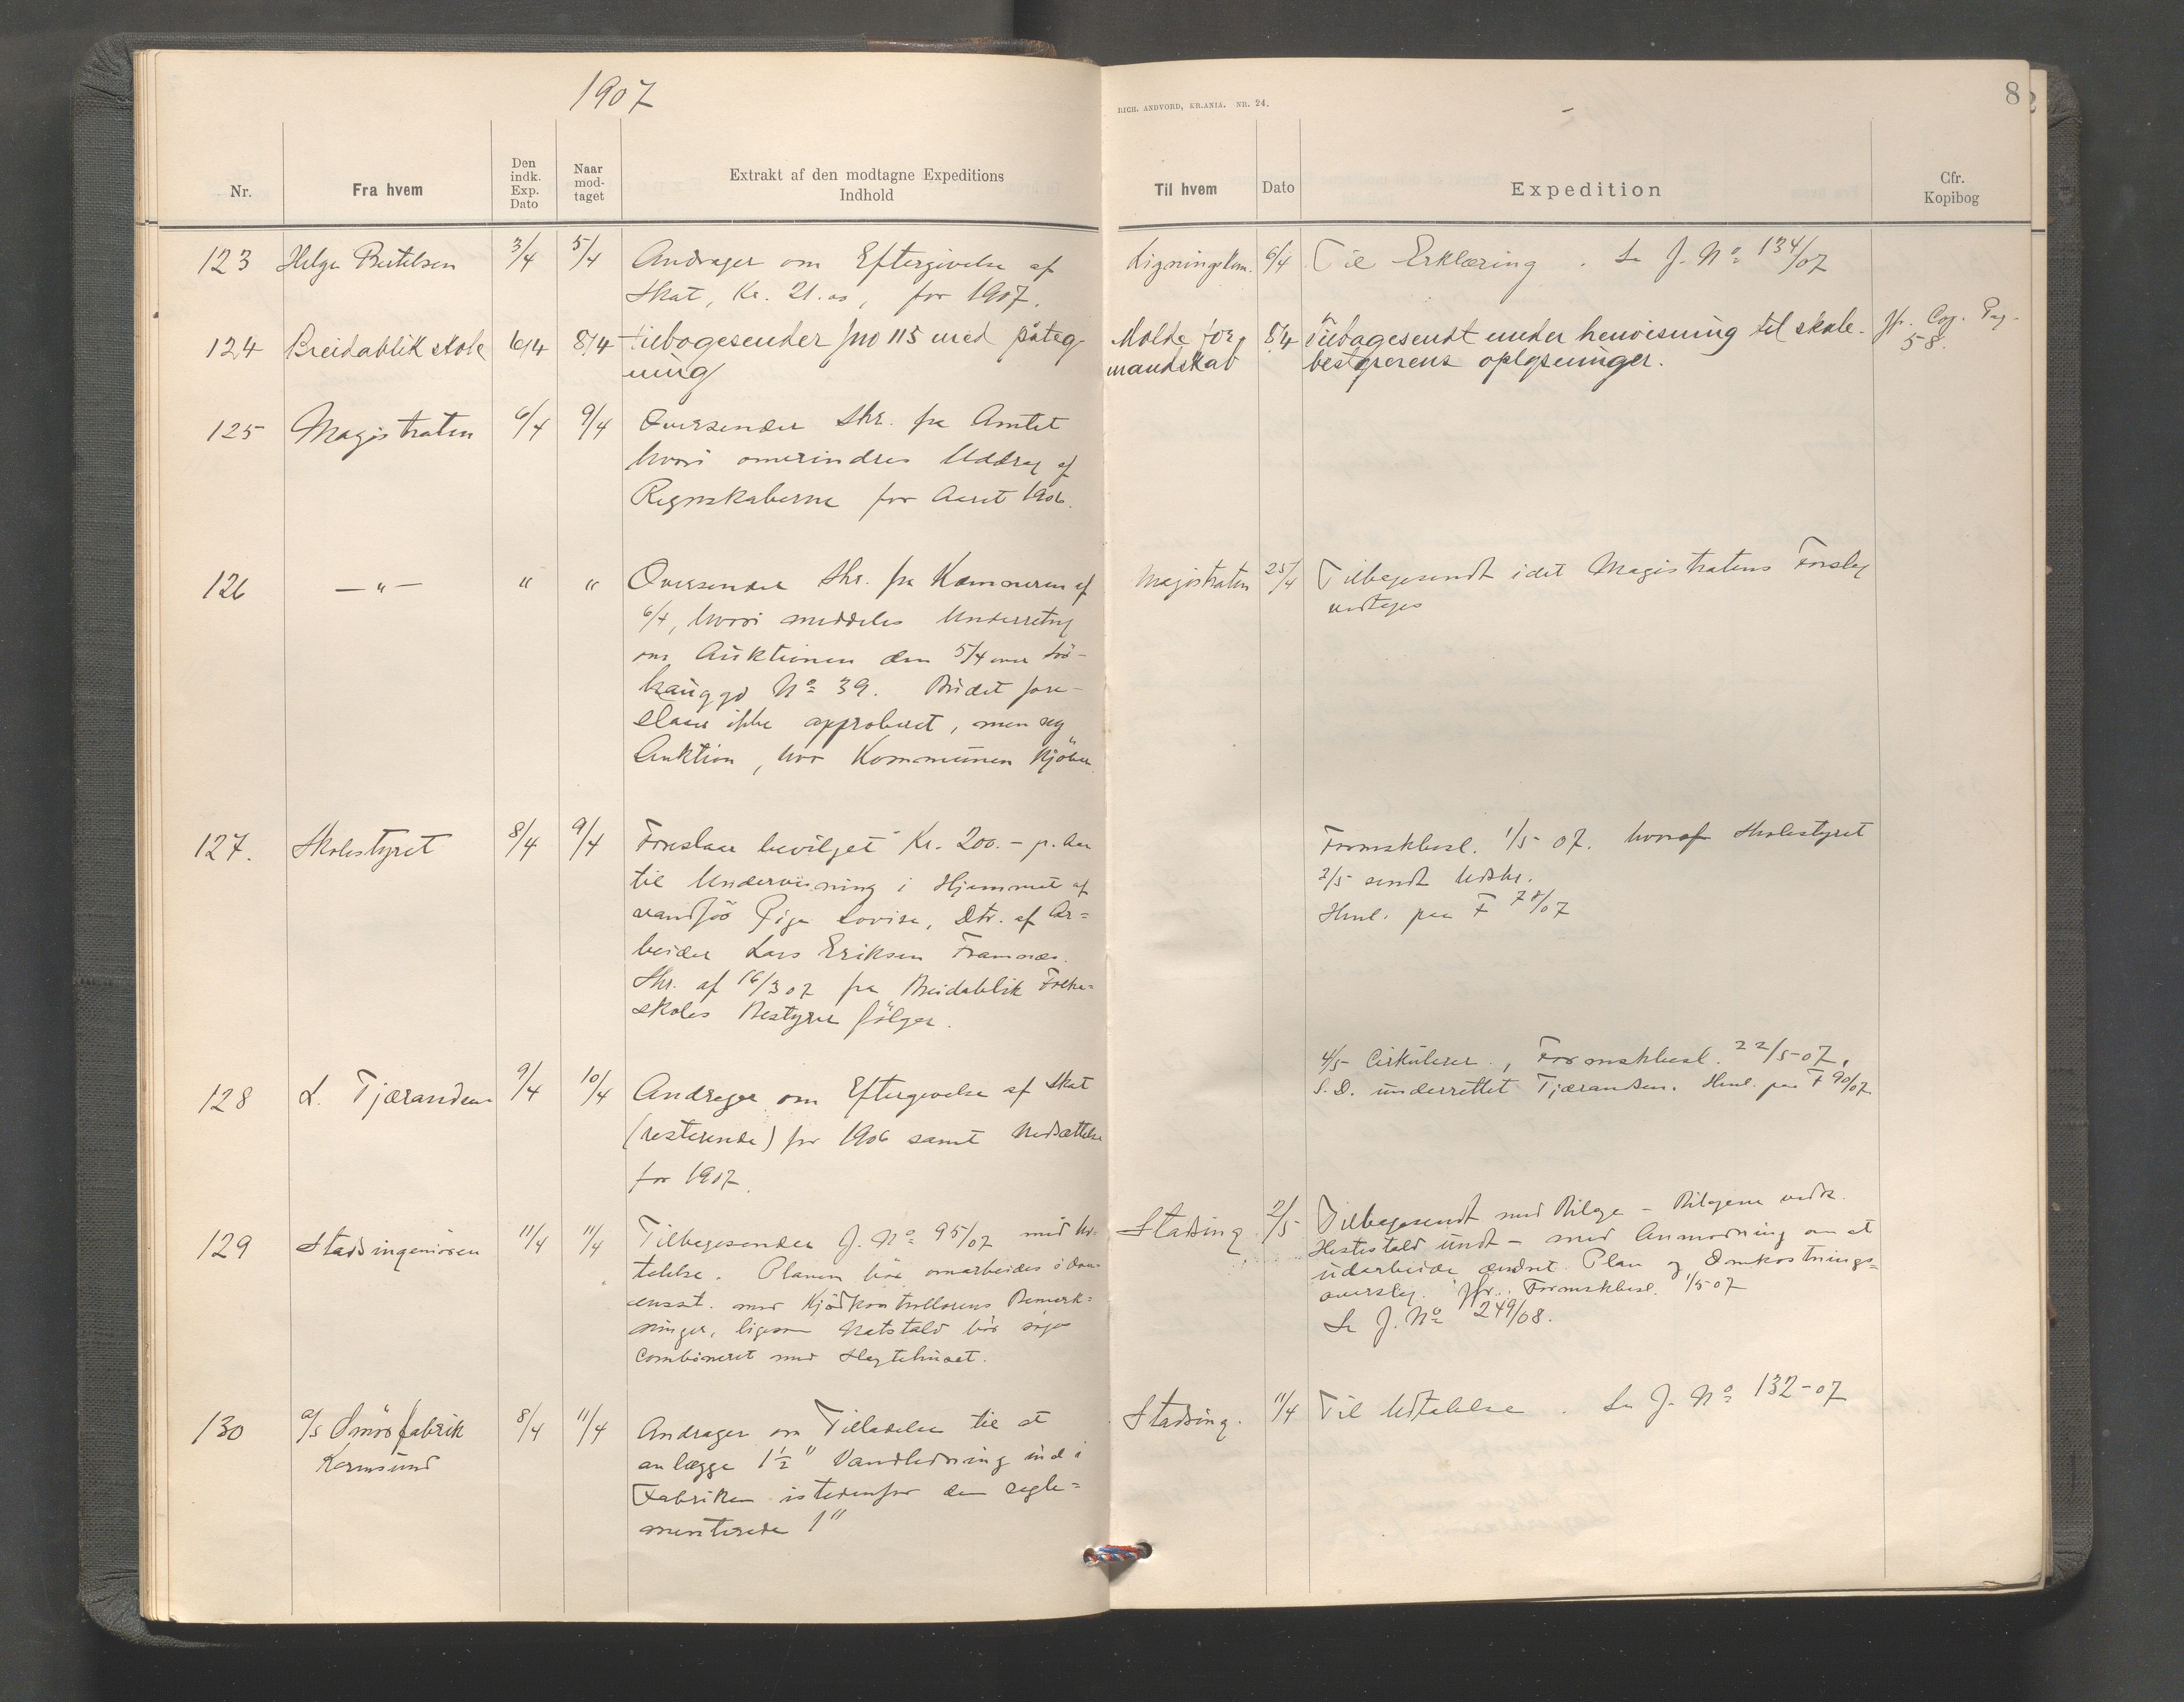 1907
RICH. ANDVORD, KR.ANIA. NR. 24.
8
Nr.
Fra hvem
Den indk. Exp. Dato
Naar mod- taget
Extrakt af den modtagne Expeditions Indhold
Til hvem
Dato
Expedition
Cfr. Kopibog
123 Helge Bertelsen 3/4 5/4 Andrager om Eftergivelse af
Skat, Kr. 21.00, for 1907.
Ligningskom. 6/4 Til Erklæring. Se J. No 134/07
124 Breidablik skole 6/4 8/4 tilbagesender jno 115 med påteg-
ning
Molde for, mandskab 8/4 Tilbagesendt under henvisning til skole-
bestyrerens oplysninger.
Jfr. Cop. Pag.
58.
125 Magistraten 6/4 9/4 Oversender Skr. fra Amtet
hvori omerindres Uddrag af
Regnskaberne for Aaret 1906.
126 —"— " " Oversender Skr. fra Kæmneren af
6/4, hvori meddeles Underretng
om Auktionen den 5/4 over
No 39. Budet fore-
slaaes ikke approberet, men ny
Auktion, hvor Kommunen kjöber.
Magistraten 25/4 Tilbagesendt idet Magistratens Forslag
vedtages
127. Skolestyret 8/4 9/4 Foreslaar bevilget Kr. 200.- p. Aar
til Undervisning i Hjemmet af
vanför Pige Lovise, Dtr. af Ar=
beider Lars Eriksen Framnæs.
Skr. af 16/3 07 fra Breidablik Folke=
skoles Bestyrer fölger.
Formskbesl. 1/5 07. hvoraf Skolestyret
2/5 sendt Udskr.
Henl. paa F 78/07
128 L. Tjærandsen 9/4 10/4 Andrager om Eftergivelse af Skat
(resterende) for 1906 samt Nedsættelse
for 1907.
4/5 Cirkulerer., Formskbesl. 22/5-07.
S.D. underrettet Tjærandsen. Henl. paa F 90/07
129 Stadsingeniören 11/4 11/4 Tilbagesender J. No 95/07 med Ud-
talelse. Planen bör omarbeides i Over-
ensst. med Kjödkontrollörens Bemærk=
ninger, ligesom bör
combineret med Slagtehuset.
Stadsing. 2/5 Tilbagesendt med Bilage – Bilagene vedk.
Hestestald undt – med Anmodning om at
udarbeide ændret Plan og Omkostnings=
overslag. Jfr. Formskbesl. 1/5 07
Se J. No 249/08.
130 a/s Smörfabrik
Karmsund
8/4 11/4 Andrager om Tilladelse til at
anlægge 1½" Vandledning ind i
Fabriken istedenfor den regle=
menterede 1"
Stadsing. 11/4 Til Udtalelse. Se J. No 132-07